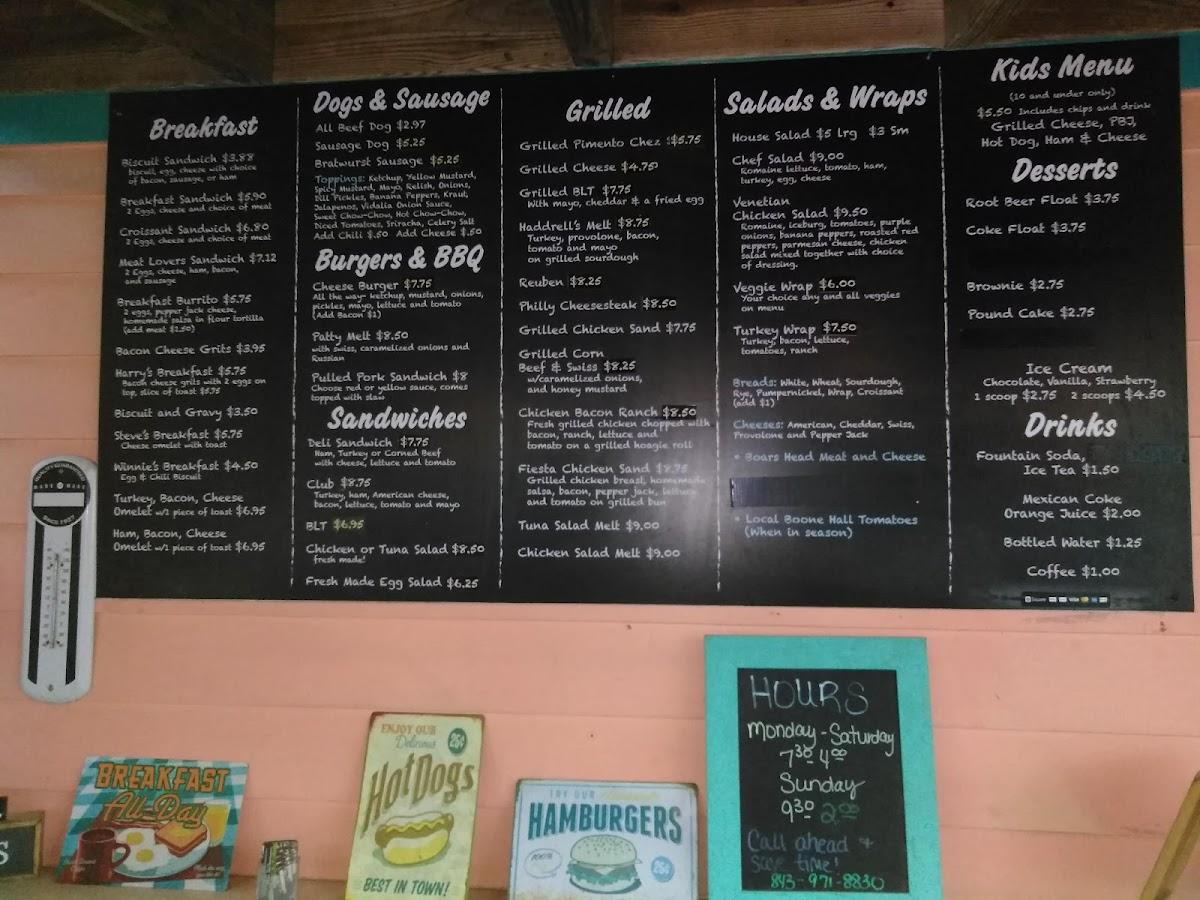 Breakfast
Biscuit Sandwich $3.88
biscuit, egg, cheese with choice
of bacon, sausage, or ham
Breakfast Sandwich $5.90
2 Eggs, cheese and choice of meat
Croissant Sandwich $6.80
2 Eggs, cheese and choice of meat
Meat Lovers Sandwich $7.12
2 Eggs, cheese, ham, bacon,
and sausage
Breakfast Burrito $5.75
2 eggs, pepper jack cheese,
homemade salsa in flour tortilla
(add meat $1.50)
Bacon Cheese Grits $3.95
Harry's Breakfast $5.75
Bacon cheese grits with 2 eggs on
top, slice of toast $5.75
Biscuit and Gravy $3.50
Steve's Breakfast $5.75
Cheese omelet with toast
Winnie's Breakfast $4.50
Egg & Chili Biscuit
Turkey, Bacon, Cheese
Omelet w/1 piece of toast $6.95
Ham, Bacon, Cheese
Omelet w/1 piece of toast $6.95
Dogs & Sausage
All Beef Dog $2.97
Sausage Dog $5.25
Bratwurst Sausage $5.25
Toppings: Ketchup, Yellow Mustard,
Spicy Mustard, Mayo, Relish, Onions,
Dill Pickles, Banana Peppers, Kraut,
Jalapenos, Vidalia Onion Sauce,
Sweet Chow-Chow, Hot Chow-Chow,
Diced Tomatoes, Sriracha, Celery Salt
Add Chili $.50 Add Cheese $.50
Burgers & BBQ
Cheese Burger $7.75
All the way- ketchup, mustard, onions,
pickles, mayo, lettuce and tomato
(Add Bacon $1)
Patty Melt $8.50
with swiss, caramelized onions and
Russian
Pulled Pork Sandwich $8
Choose red or yellow sauce, comes
topped with slaw
Sandwiches
Deli Sandwich $7.75
Ham, Turkey or Corned Beef
with cheese, lettuce and tomato
Club $8.75
Turkey, ham, American cheese,
bacon, lettuce, tomato and mayo
BLT $6.95
Chicken or Tuna Salad $8.50
fresh made!
Fresh Made Egg Salad $6.25
Grilled
Grilled Pimento Chez $5.75
Grilled Cheese $4.75
Grilled BLT $7.75
With mayo, cheddar & a fried egg
Haddrell's Melt $8.75
Turkey, provolone, bacon,
tomato and mayo
on grilled sourdough
Reuben $8.25
Philly Cheesesteak $8.50
Grilled Chicken Sand $7.75
Grilled Corn
Beef & Swiss $8.25
w/caramelized onions,
and honey mustard
Chicken Bacon Ranch $8.50
Fresh grilled chicken chopped with
bacon, ranch, lettuce and
tomato on a grilled hoagie roll
Fiesta Chicken Sand $8.75
Grilled chicken breast, homemade
salsa, bacon, pepper jack, lettuce
and tomato on grilled bun
Tuna Salad Melt $9.00
Chicken Salad Melt $9.00
Salads & Wraps
House Salad $5 lrg $3 Sm
Chef Salad $9.00
Romaine lettuce, tomato, ham,
turkey, egg, cheese
Venetian
Chicken Salad $9.50
Romaine, iceburg, tomatoes, purple
onions, banana peppers, roasted red
peppers, parmesan cheese, chicken
salad mixed together with choice
of dressing.
Veggie Wrap $6.00
Your choice any and all veggies
on menu
Turkey Wrap $7.50
Turkey, bacon, lettuce,
tomatoes, ranch
Breads: White, Wheat, Sourdough,
Rye, Pumpernickel, Wrap, Croissant
(add $1)
Cheeses: American, Cheddar, Swiss,
Provolone and Pepper Jack
* Boars Head Meat and Cheese
* Local Boone Hall Tomatoes
(When in season)
Kids Menu
(10 and under only)
$5.50 Includes chips and drink
Grilled Cheese, PBJ,
Hot Dog, Ham & Cheese
Desserts
Root Beer Float $3.75
Coke Float $3.75
Brownie $2.75
Pound Cake $2.75
Ice Cream
Chocolate, Vanilla, Strawberry
1 scoop $2.75 2 scoops $4.50
Drinks
Fountain Soda,
Ice Tea $1.50
Mexican Coke
Orange Juice $2.00
Bottled Water $1.25
Coffee $1.00
QUALITY GUARANTEED
SINCE 1957
BREAKFAST
All-Day
ENJOY OUR
Delicious
25¢
HOT DOGS
BEST IN TOWN!
TRY OUR
HAMBURGERS
100%
25¢
HOURS
Monday - Saturday
7:30 4:00
Sunday
9:30 2:00
Call ahead +
save time!
843-971-8830
S